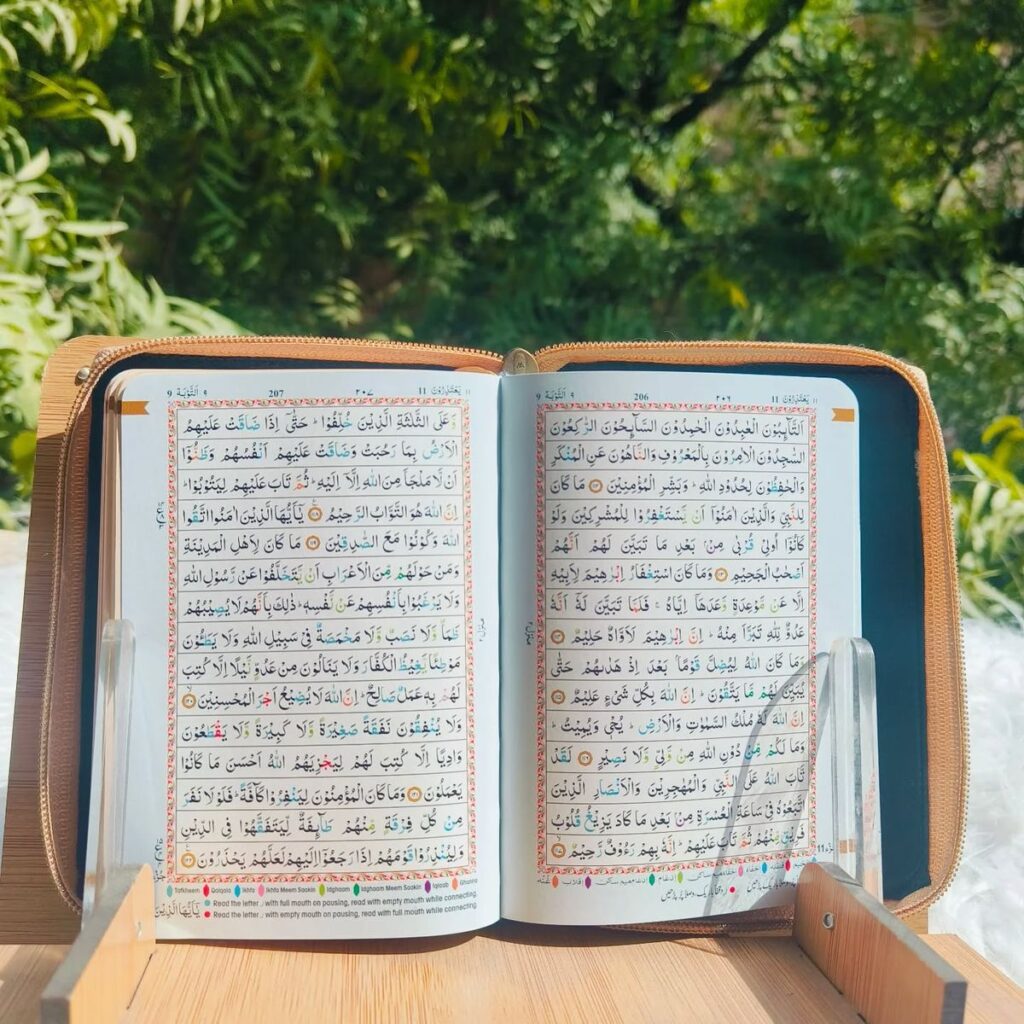 يَعْتَذِرُوْنَ ١١
٢٠٦
206
٩ اَلتَّوْبَة 9
اَلتَّآئِبُوْنَ الْعٰبِدُوْنَ الْحٰمِدُوْنَ السَّآئِحُوْنَ الرّٰكِعُوْنَ
السّٰجِدُوْنَ الْاٰمِرُوْنَ بِالْمَعْرُوْفِ وَالنَّاهُوْنَ عَنِ الْمُنْكَرِ
وَالْحٰفِظُوْنَ لِحُدُوْدِ اللّٰهِ ؕ وَبَشِّرِ الْمُؤْمِنِيْنَ ﴿۱۱۲﴾ مَا كَانَ
لِلنَّبِيِّ وَالَّذِيْنَ اٰمَنُوْۤا اَنْ يَّسْتَغْفِرُوْا لِلْمُشْرِكِيْنَ وَلَوْ
كَانُوْۤا اُولِيْ قُرْبٰى مِنْۢ بَعْدِ مَا تَبَيَّنَ لَهُمْ اَنَّهُمْ
اَصْحٰبُ الْجَحِيْمِ ﴿۱۱۳﴾ وَمَا كَانَ اسْتِغْفَارُ اِبْرٰهِيْمَ لِاَبِيْهِ
اِلَّا عَنْ مَّوْعِدَةٍ وَّعَدَهَاۤ اِيَّاهُ ۚ فَلَمَّا تَبَيَّنَ لَهٗۤ اَنَّهٗ
عَدُوٌّ لِّلّٰهِ تَبَرَّاَ مِنْهُ ؕ اِنَّ اِبْرٰهِيْمَ لَاَوَّاهٌ حَلِيْمٌ ﴿۱۱۴﴾
وَمَا كَانَ اللّٰهُ لِيُضِلَّ قَوْمًۢا بَعْدَ اِذْ هَدٰىهُمْ حَتّٰى
يُبَيِّنَ لَهُمْ مَّا يَتَّقُوْنَ ؕ اِنَّ اللّٰهَ بِكُلِّ شَيْءٍ عَلِيْمٌ ﴿۱۱۵﴾
اِنَّ اللّٰهَ لَهٗ مُلْكُ السَّمٰوٰتِ وَالْاَرْضِ ؕ يُحْيٖ وَيُمِيْتُ ؕ
وَمَا لَكُمْ مِّنْ دُوْنِ اللّٰهِ مِنْ وَّلِيٍّ وَّلَا نَصِيْرٍ ﴿۱۱۶﴾ لَقَدْ
تَّابَ اللّٰهُ عَلَى النَّبِيِّ وَالْمُهٰجِرِيْنَ وَالْاَنْصَارِ الَّذِيْنَ
اتَّبَعُوْهُ فِيْ سَاعَةِ الْعُسْرَةِ مِنْۢ بَعْدِ مَا كَادَ يَزِيْغُ قُلُوْبُ
فَرِيْقٍ مِّنْهُمْ ثُمَّ تَابَ عَلَيْهِمْ ؕ اِنَّهٗ بِهِمْ رَءُوْفٌ رَّحِيْمٌ ﴿۱۱۷﴾
يَعْتَذِرُوْنَ ١١
٢٠٧
207
٩ اَلتَّوْبَة 9
وَّعَلَى الثَّلٰثَةِ الَّذِيْنَ خُلِّفُوْا ؕ حَتّٰۤى اِذَا ضَاقَتْ عَلَيْهِمُ
الْاَرْضُ بِمَا رَحُبَتْ وَضَاقَتْ عَلَيْهِمْ اَنْفُسُهُمْ وَظَنُّوْۤا
اَنْ لَّا مَلْجَاَ مِنَ اللّٰهِ اِلَّاۤ اِلَيْهِ ؕ ثُمَّ تَابَ عَلَيْهِمْ لِيَتُوْبُوْا ؕ
اِنَّ اللّٰهَ هُوَ التَّوَّابُ الرَّحِيْمُ ﴿۱۱۸﴾ يٰۤاَيُّهَا الَّذِيْنَ اٰمَنُوا اتَّقُوا
اللّٰهَ وَكُوْنُوْا مَعَ الصّٰدِقِيْنَ ﴿۱۱۹﴾ مَا كَانَ لِاَهْلِ الْمَدِيْنَةِ
وَمَنْ حَوْلَهُمْ مِّنَ الْاَعْرَابِ اَنْ يَّتَخَلَّفُوْا عَنْ رَّسُوْلِ اللّٰهِ
وَلَا يَرْغَبُوْا بِاَنْفُسِهِمْ عَنْ نَّفْسِهٖ ؕ ذٰلِكَ بِاَنَّهُمْ لَا يُصِيْبُهُمْ
ظَمَاٌ وَّلَا نَصَبٌ وَّلَا مَخْمَصَةٌ فِيْ سَبِيْلِ اللّٰهِ وَلَا يَطَـُٔوْنَ
مَوْطِئًا يَّغِيْظُ الْكُفَّارَ وَلَا يَنَالُوْنَ مِنْ عَدُوٍّ نَّيْلًا اِلَّا كُتِبَ
لَهُمْ بِهٖ عَمَلٌ صَالِحٌ ؕ اِنَّ اللّٰهَ لَا يُضِيْعُ اَجْرَ الْمُحْسِنِيْنَ ﴿۱۲۰﴾
وَلَا يُنْفِقُوْنَ نَفَقَةً صَغِيْرَةً وَّلَا كَبِيْرَةً وَّلَا يَقْطَعُوْنَ
وَادِيًا اِلَّا كُتِبَ لَهُمْ لِيَجْزِيَهُمُ اللّٰهُ اَحْسَنَ مَا كَانُوْا
يَعْمَلُوْنَ ﴿۱۲۱﴾ وَمَا كَانَ الْمُؤْمِنُوْنَ لِيَنْفِرُوْا كَآفَّةً ؕ فَلَوْلَا نَفَرَ
مِنْ كُلِّ فِرْقَةٍ مِّنْهُمْ طَآئِفَةٌ لِّيَتَفَقَّهُوْا فِي الدِّيْنِ
وَلِيُنْذِرُوْا قَوْمَهُمْ اِذَا رَجَعُوْۤا اِلَيْهِمْ لَعَلَّهُمْ يَحْذَرُوْنَ ﴿۱۲۲﴾
Tafkheem Qalqala Ikhfa Ikhfa Meem Saakin Idghaam Idghaam Meem Saakin Iqlaab Ghunna
Read the letter ر with full mouth on pausing, read with empty mouth while connecting.
Read the letter ر with empty mouth on pausing, read with full mouth while connecting.
يٰۤاَيُّهَا الَّذِيْنَ